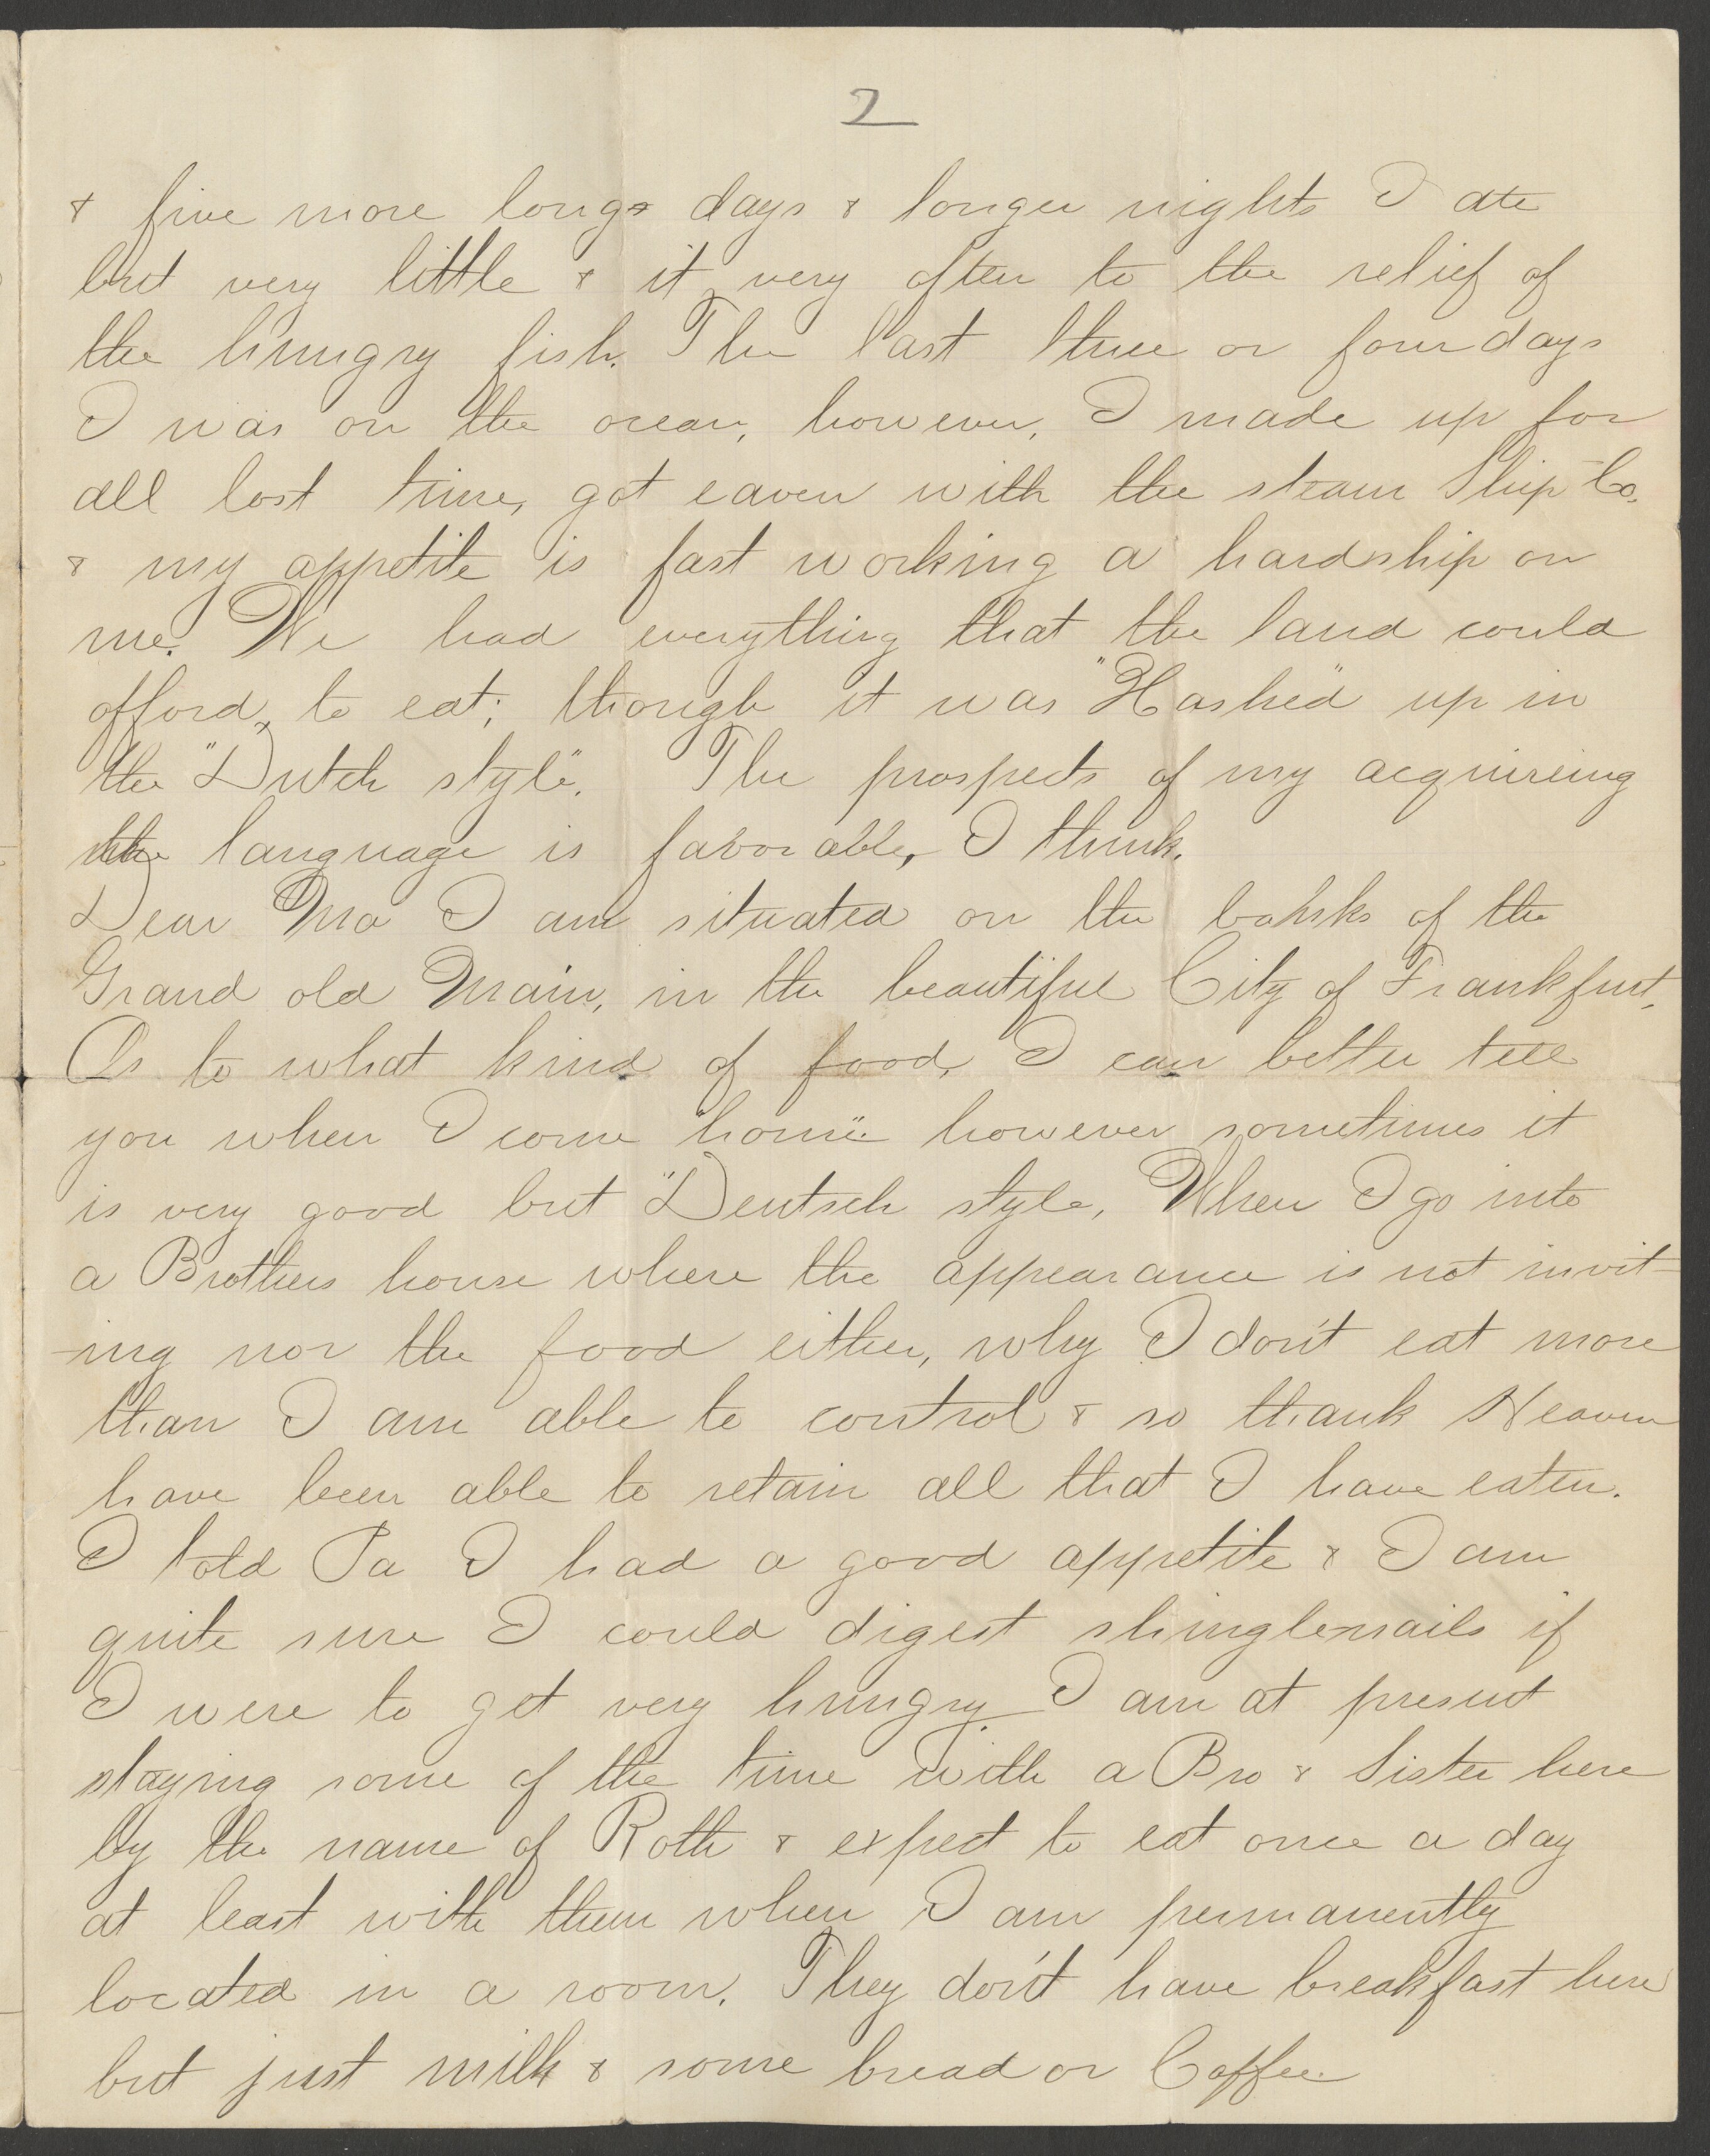 2
& five more long days & longer nights I ate
but very little & it very often to the relief of
the hungry fish. The last three or four days
I was on the ocean, however, I made up for
all lost time, got eaven with the steam Ship Co.
& my appetite is fast working a hardship on
me. We had everything that the land could
afford, to eat; though it was "Hashed" up in
the "Dutch style". The prospects of my acquireing
the language is favorable, I think.
Dear Ma I am situated on the banks of the
Grand old Main, in the beautiful City of Frankfurt.
As to what kind of food, I can better tell
you when I come "home". however sometimes it
is very good but "Deutsch style, When I go into
a Brothers house where the appearance is not invit-
-ing nor the food either, why I don't eat more
than I am able to control & so thank Heaven
have been able to retain all that I have eaten.
I told Pa I had a good appetite & I am
quite sure I could digest shinglenails if
I were to get very hungry I am at present
staying some of the time with a Bro & Sister here
by the name of Roth & expect to eat once a day
at least with them when I am permanently
located in a room. They don't have breakfast here
but just milk & some bread or Coffee.